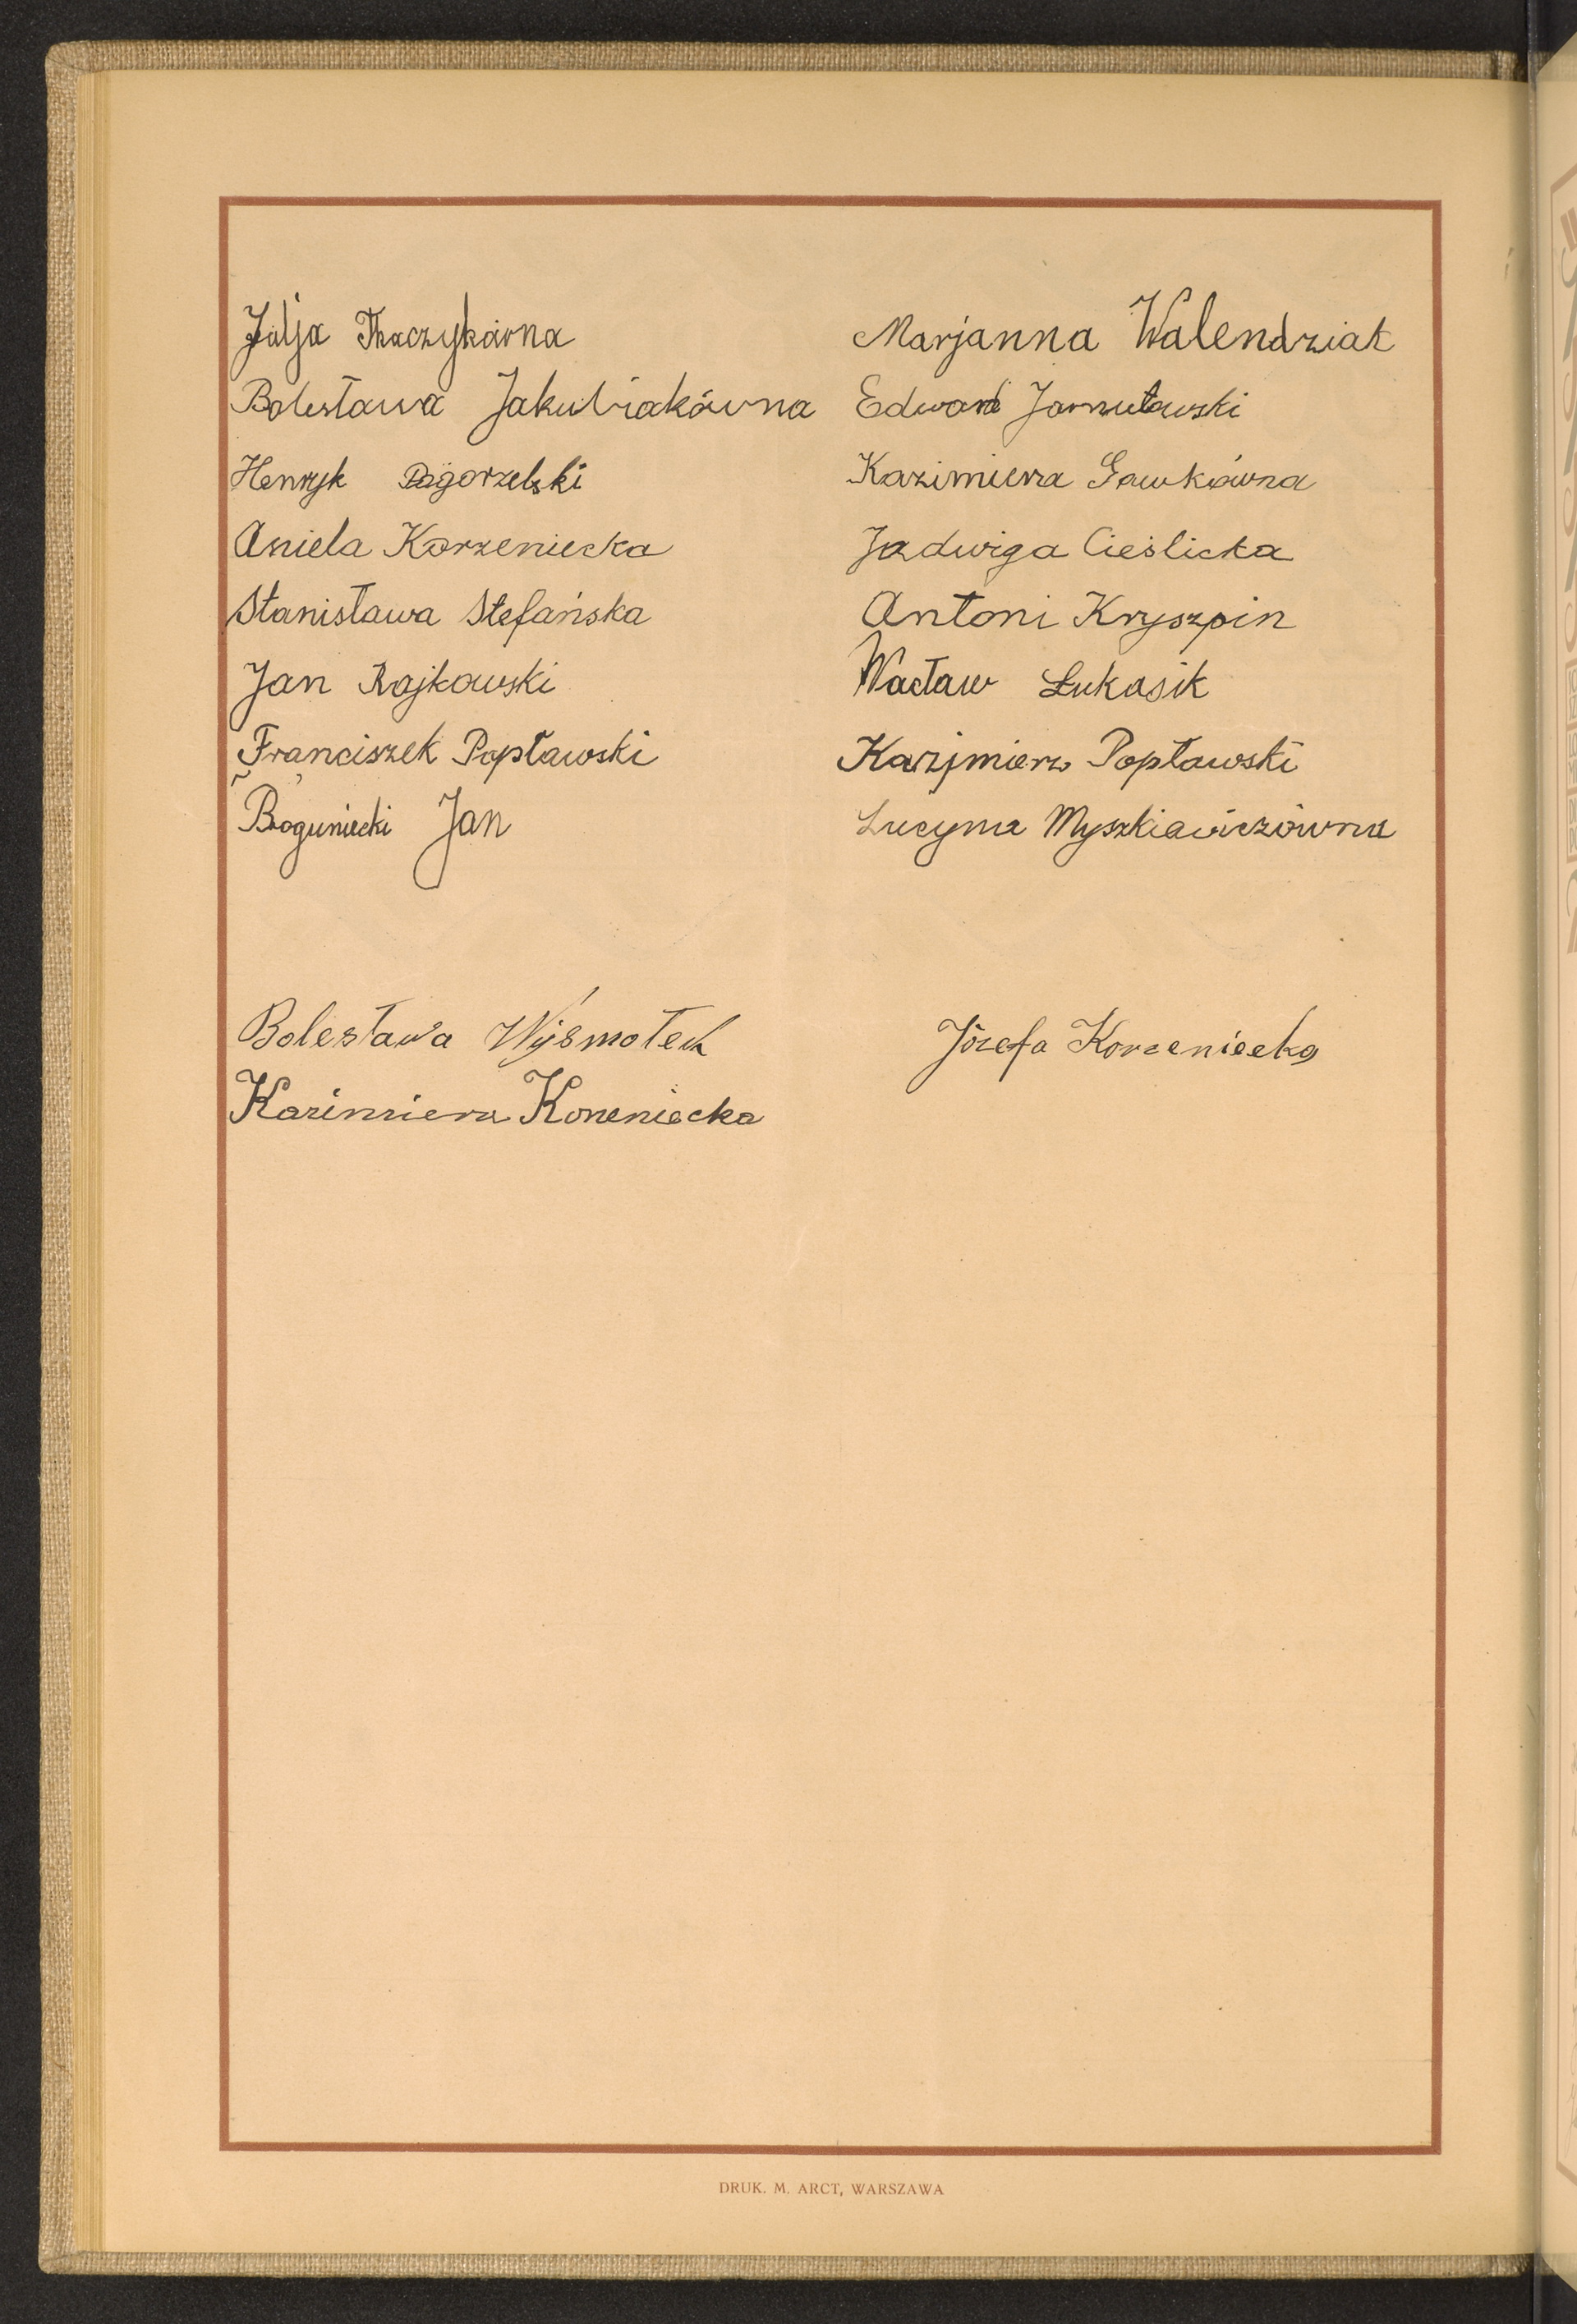 Julja Tkaczykówna
Bolesława Jakubiakówna
Henryk Pogorzelski
Aniela Korzeniecka
Stanisława Stefańska
Jan Rajkowski
Franciszek Popławski
Boguniecki Jan
Marjanna Walendziak
Edward Jarnutowski
Kazimiera Gawkówna
Jadwiga Cieślicka
Antoni Kryszpin
Wacław Łukasik
Kazimierz Popławski
Lucyna Myszkiewiczówna
Bolesława Wyśmołek
Kazimiera Korzeniecka
Józefa Korzeniecka
DRUK. M. ARCT, WARSZAWA